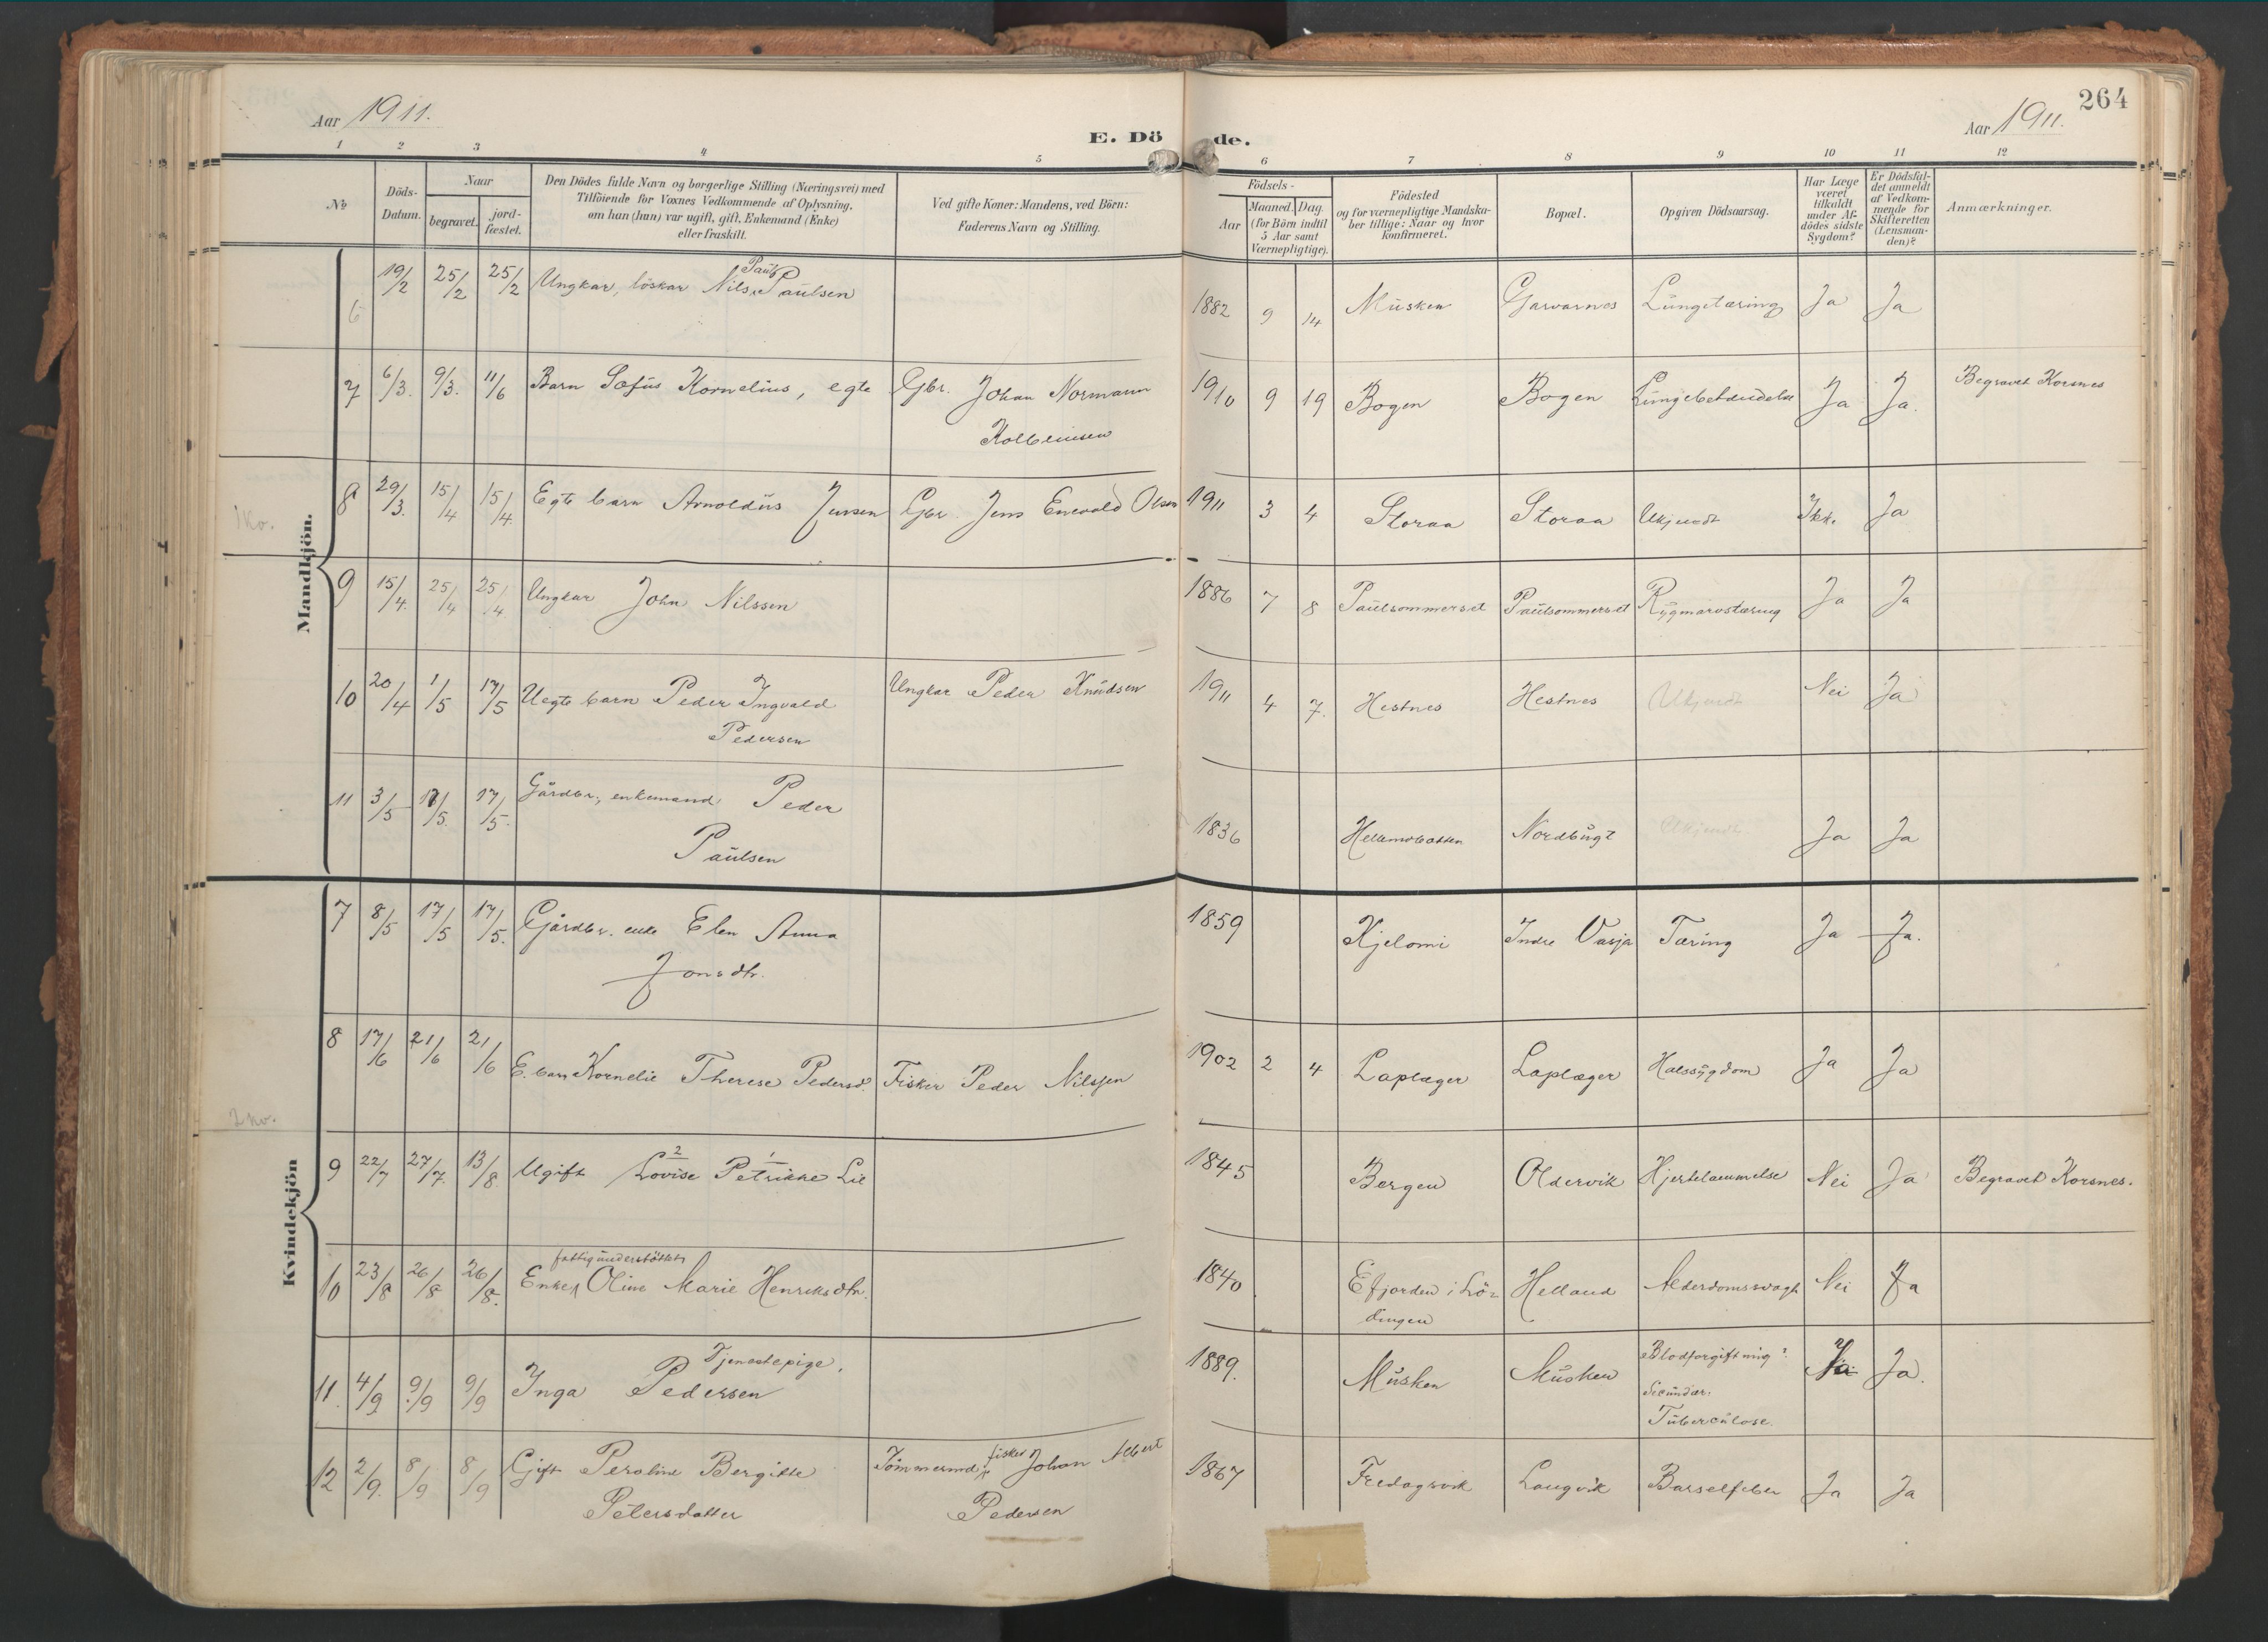 264
Aar 1911.
E. Döde.
Aar 1911.
1 2 3 4 5 6 7 8 9 10 11 12
№
Döds-Datum.
Naar
begravet.
jord-fæstet.
Den Dödes fulde Navn og borgerlige Stilling (Næringsvei) med
Tilföiende for Voxnes Vedkommende af Oplysning,
om han (hun) var ugift, gift, Enkemand (Enke)
eller fraskilt.
Ved gifte Koner: Mandens, ved Börn:
Faderens Navn og Stilling.
Födsels-
Aar
Maaned. Dag.
(for Börn indtil
5 Aar samt
Værnepligtige).
Födested
og for værnepligtige Mandska-
ber tillige: Naar og hvor
konfirmeret.
Bopæl.
Opgiven Dödsaarsag.
Har Læge
været
tilkaldt
under Af-
dödes sidste
Sygdom?
Er Dödsfal-
det anmeldt
af Vedkom-
mende for
Skifteretten
(Lensman-
den)?
Anmærkninger.
Mandkjön.
6 19/2 25/2 25/2 Ungkar, löskar Nils Paul Paulsen 1882 9 14 Musken Garvarnes Lungetæring Ja Ja
7 6/3. 9/3. 11/6 Barn Sofus Kornelius, egte Gbr. Johan Normann 1910 9 19 Bogen Bogen Lungebetændelse Ja Ja. Begravet Korsnes
Kolbeinsen
1 Ko.
8 29/3. 15/4 15/4. Egte barn Arnoldus Jensen Gbr. Jens Enevold Olsen 1911 3 4 Storaa Storaa Ukjendt Ikke Ja
9 15/4. 25/4 25/4 Ungkar John Nilssen 1886 7 8 Paulsommerset Paulsommerset Rygmarvstæring Ja Ja
10 20/4 1/5 17/5 Uegte barn Peder Ingvald Ungkar Peder Knudsen 1911 4 7. Hestnes Hestnes Ukjendt Nei Ja
Pedersen
11 3/5 17/5. 17/5. Gårdbr., enkemand Peder
Paulsen 1836 Hellemobotten Nordbugt Ukjendt Ja Ja
Kvindekjön
7 8/5 17/5 17/5. Gårdbr. enke Elen Anna 1859 Kjelomi Indre Vasja Tæring Ja Ja.
Jonsdtr.
8 17/6 21/6 21/6 E. barn Kornelie Therese Pedersd. Fisker Peder Nilssen 1902 2 4 Laplæger Laplæger Halssygdom Ja Ja
2 Ko.
9 22/7 27/7. 13/8. Ugift 2 Lovise 1 Petrikke Lie 1845 Bergen Oldervik Hjertelammelse Nei Ja Begravet Korsnes.
fattigunderstöttet
10 23/8 26/8 26/8. Enke, Oline Marie Henriksdtr. 1840 Efjorden i Lö- Helland Alderdomssvagh Nei Ja
dingen
Tjenestepige.
11. 4/9 9/9 9/9 Inga Pedersen 1889. Musken Musken Blodforgiftning? Ja Ja.
Secundær:
Tuberculose.
12 2/9. 8/9 8/9 Gift Peroline Bergitte Tömmermd, fisker Johan Albert 1867 Fredagsvik Langvik Barselfeber Ja Ja
Petersdatter Pedersen